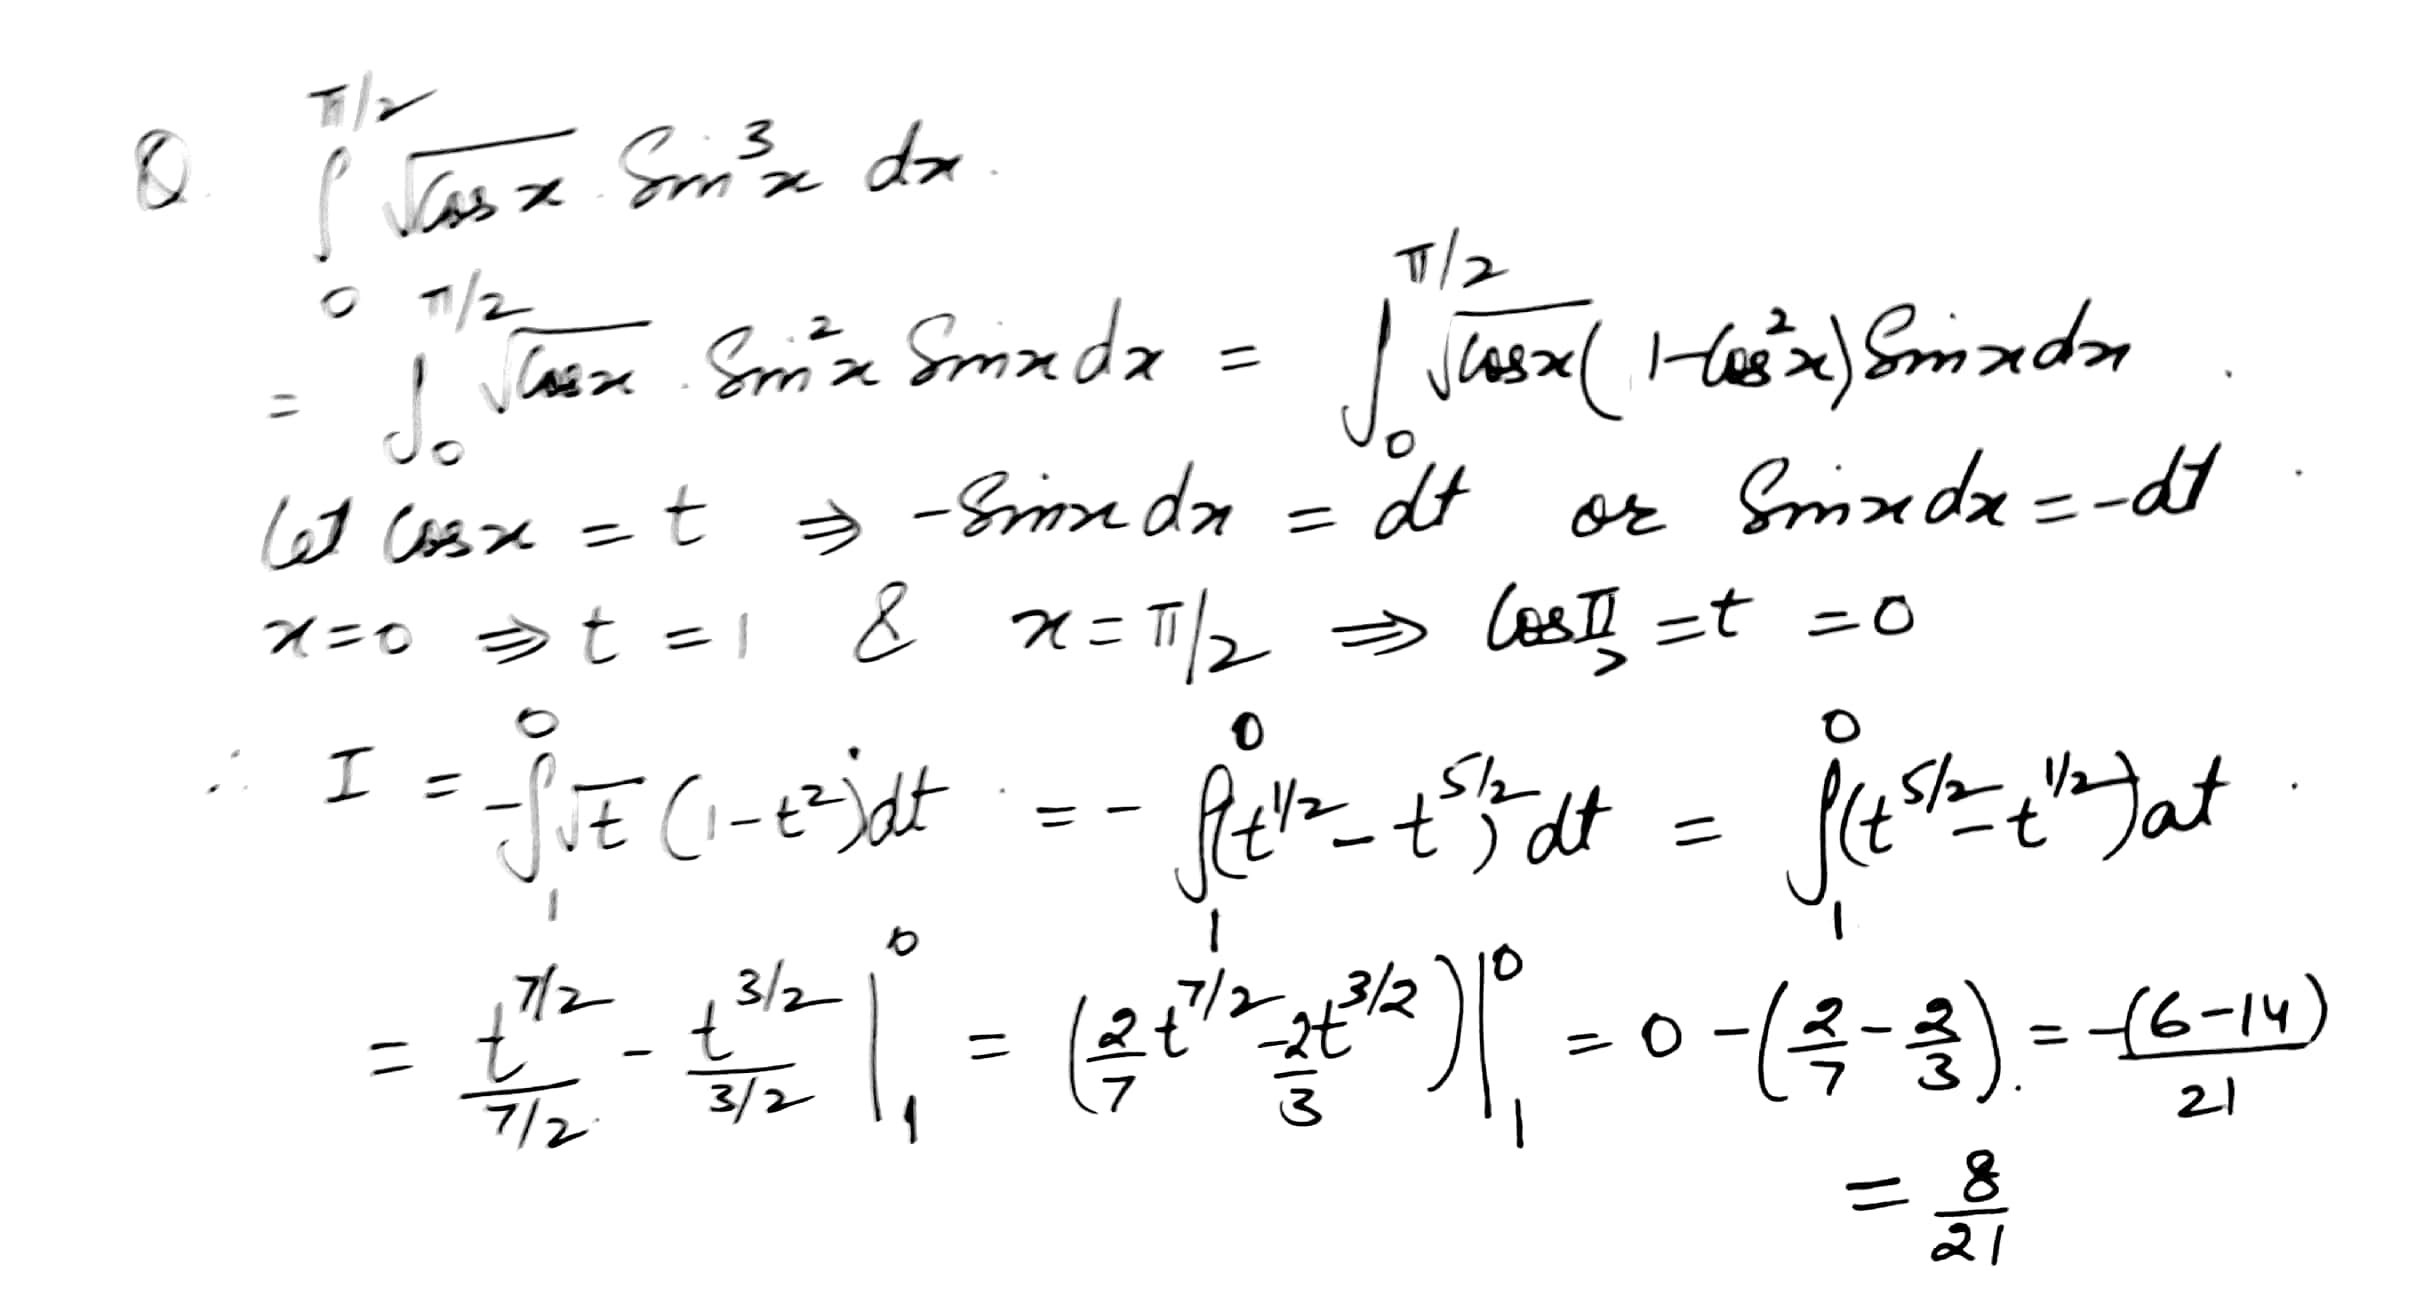 Q. ∫₀^{π/2} √(Cos x) . Sin³x dx.
= ∫₀^{π/2} √(Cosx) . Sin²x Sinx dx = ∫₀^{π/2} √(Cosx) (1-Cos²x) Sinx dx .
Let Cosx = t ⇒ -Sinx dx = dt or Sinx dx = -dt .
x=0 ⇒ t = 1 & x = π/2 ⇒ Cos π/2 = t = 0
∴ I = -∫₁⁰ √t (1-t²)dt . = - ∫₁⁰ (t^{1/2} - t^{5/2}) dt = ∫₁⁰ (t^{5/2} - t^{1/2}) dt .
= t^{7/2}/(7/2) - t^{3/2}/(3/2) |₁⁰ = (2/7 t^{7/2} - 2/3 t^{3/2})|₁⁰ = 0 - (2/7 - 2/3). = -(6-14)/21
= 8/21